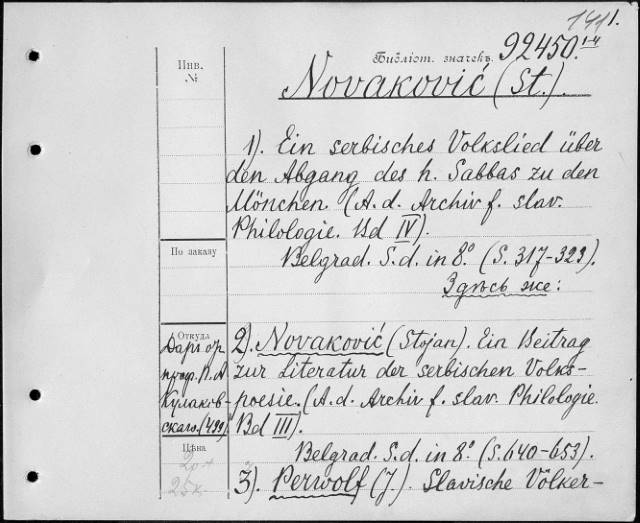 1411.
Инв.
№
Библіот. значекъ 92450.1-4
Novaković (St.).
1). Ein serbisches Volkslied über
den Abgang des h. Sabbas zu den
Mönchen. (A. d. Archiv f. slav.
Philologie. Bd IV).
По заказу
Belgrad. S. d. in 8.° (S. 317-323).
Здѣсь же:
Откуда
Даръ отъ
проф. П. А.
Кулаков-
скаго. (499)
2). Novaković (Stojan). Ein Beitrag
zur Literatur der serbischen Volks-
poesie. (A. d. Archiv f. slav. Philologie.
Bd III).
Цѣна
20 +
25 к.
Belgrad. S. d. in 8.° (S. 640-653).
3). Perwolf (J.). Slavische Völker-